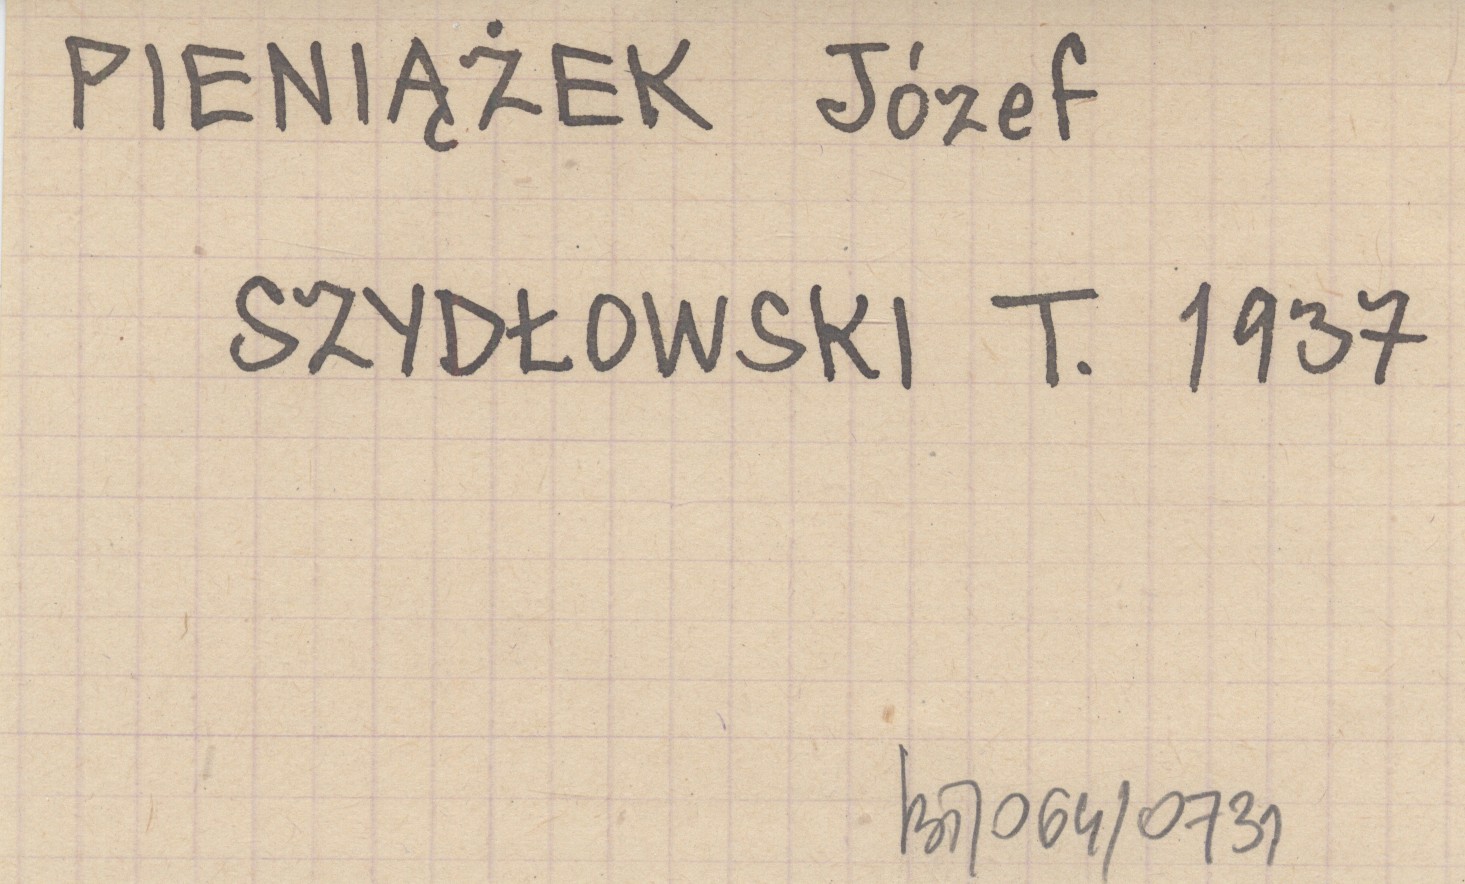 PIENIĄŻEK Józef
SZYDŁOWSKI T. 1937
064/0731